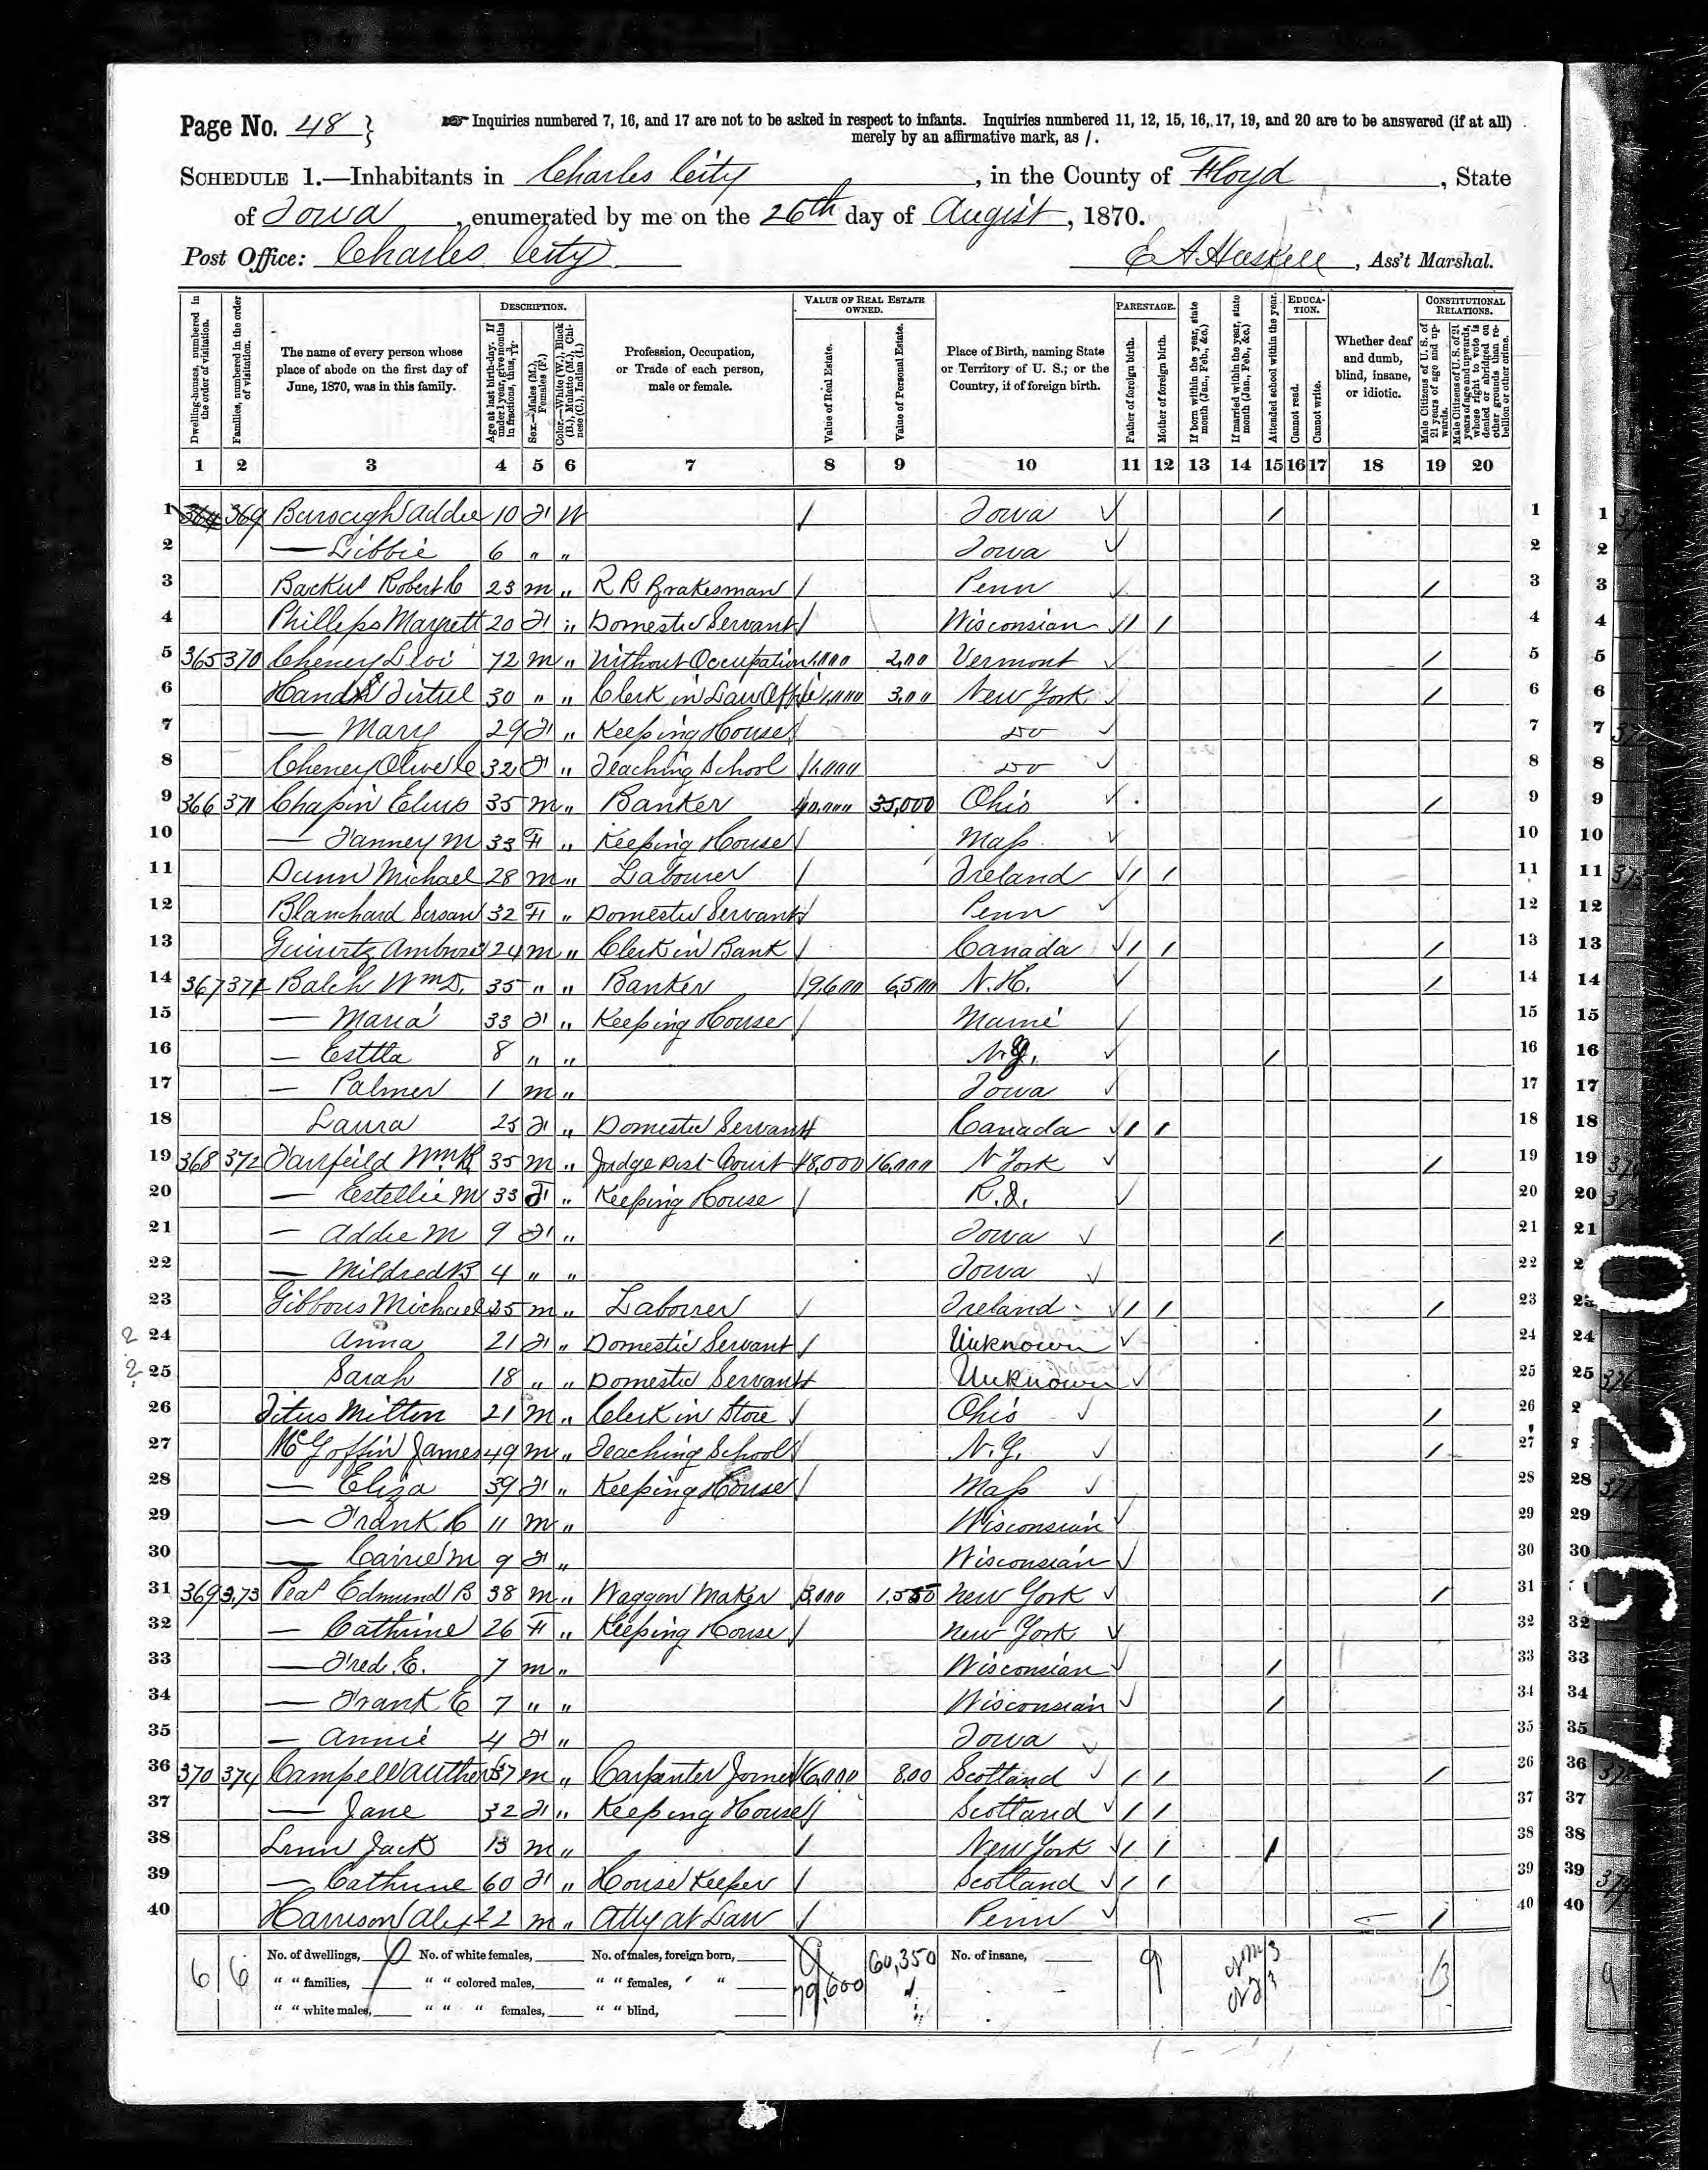 Page No. 48 }
Inquiries numbered 7, 16, and 17 are not to be asked in respect to infants. Inquiries numbered 11, 12, 15, 16, 17, 19, and 20 are to be answered (if at all)
merely by an affirmative mark, as /.
SCHEDULE 1.—Inhabitants in Charles City, in the County of Floyd, State
of Iowa, enumerated by me on the 26th day of August, 1870.
Post Office: Charles City
E A Haskell, Ass't Marshal.
Dwelling-houses, numbered in the order of visitation.
Families, numbered in the order of visitation.
The name of every person whose place of abode on the first day of June, 1870, was in this family.
DESCRIPTION.
Age at last birth-day. If under 1 year, give months in fractions, thus, 3/12.
Sex.—Males (M.), Females (F.)
Color.—White (W.), Black (B.), Mulatto (M.), Chinese (C.), Indian (I.)
Profession, Occupation, or Trade of each person, male or female.
VALUE OF REAL ESTATE OWNED.
Value of Real Estate.
Value of Personal Estate.
Place of Birth, naming State or Territory of U. S.; or the Country, if of foreign birth.
PARENTAGE.
Father of foreign birth.
Mother of foreign birth.
If born within the year, state month (Jan., Feb., &c.)
If married within the year, state month (Jan., Feb., &c.)
Attended school within the year.
EDUCATION.
Cannot read.
Cannot write.
Whether deaf and dumb, blind, insane, or idiotic.
CONSTITUTIONAL RELATIONS.
Male Citizens of U. S. of 21 years of age and upwards.
Male Citizens of U. S. of 21 years of age and upwards, whose right to vote is denied or abridged on other grounds than rebellion or other crime.
1 2 3 4 5 6 7 8 9 10 11 12 13 14 15 16 17 18 19 20
1 364 369 Burough Addie 10 F W / Iowa ✓ / 1
2 — Libbie 6 " " Iowa ✓ 2
3 Backus Robert C 23 m " R R Brakesman / Penn ✓ / 3
4 Phillips Margrett 20 F " Domestic Servant / Wisconsian ✓ / / 4
5 365 370 Cheney Levi 72 m " Without Occupation 1,000 200 Vermont ✓ / 5
6 30 " " Clerk in Law Office 1,000 300 New York ✓ / 6
7 — Mary 29 F " Keeping House / Do ✓ 7
8 Cheney Olive C 32 F " Teaching School 1,000 Do ✓ 8
9 366 371 Chapin 35 m " Banker 40,000 35,000 Ohio ✓ / 9
10 — Fanney M 33 F " Keeping House / Mass ✓ 10
11 Dunn Michael 28 m " Labourer / Ireland ✓ / / 11
12 Blanchard Sersan 32 F " Domestic Servant / Penn ✓ 12
13 Ambrose 24 m " Clerk in Bank / Canada ✓ / / / 13
14 367 371 Balch Wm D. 35 " " Banker 9600 6500 N. H. ✓ / 14
15 — Maria 33 F " Keeping House / Maine ✓ 15
16 — Esttla 8 " " N. Y. ✓ / 16
17 — Palmer 1 m " Iowa ✓ 17
18 Laura 25 F " Domestic Servant Canada ✓ / / 18
19 368 372 Fairfeild Wm B. 35 m " Judge Dist Court 8,000 16,000 N York ✓ / 19
20 — Estellie M 33 F " Keeping House / R. I. ✓ 20
21 — Addie M 9 F " Iowa ✓ / 21
22 — Mildred B 4 " " Iowa ✓ 22
23 Gibbons Michael 25 m " Labourer / Ireland ✓ / / / 23
24 Anna 21 F " Domestic Servant / Unknown ✓ 24
25 Sarah 18 " " Domestic Servant Unknown ✓ 25
26 Titus Milton 21 m " Clerk in Store / Ohio ✓ / 26
27 McGoffin James 49 m " Teaching School / N. Y. ✓ / 27
28 — Eliza 39 F " Keeping House / Mass ✓ 28
29 — Frank C 11 m " Wisconsian ✓ 29
30 — Carrie M 9 F " Wisconsian ✓ 30
31 369 373 Peas Edmund B 38 m " Waggon Maker 3,000 1.550 New York ✓ / 31
32 — Cathrine 26 F " Keeping House / New York ✓ 32
33 — Fred. E. 7 m " Wisconsian ✓ / 33
34 — Frank E 7 " " Wisconsian ✓ / 34
35 — Annie 4 F " Iowa ✓ 35
36 370 374 Campell Auther 37 m " Carpenter Joiner 6,000 800 Scotland ✓ / / / 36
37 — Jane 32 F " Keeping House / Scotland ✓ / / 37
38 Jack 13 m " / New York ✓ / / / 38
39 — Cathrine 60 F " House Keeper / Scotland ✓ / / 39
40 Harrison Alex 22 m " Atty at Law / Penn ✓ / 40
6 6 No. of dwellings, No. of white females, No. of males, foreign born, 60,350 No. of insane, 9 13
" " families, " " colored males, " " females, " 79,600
" " white males, " " " females, " " blind,
0257